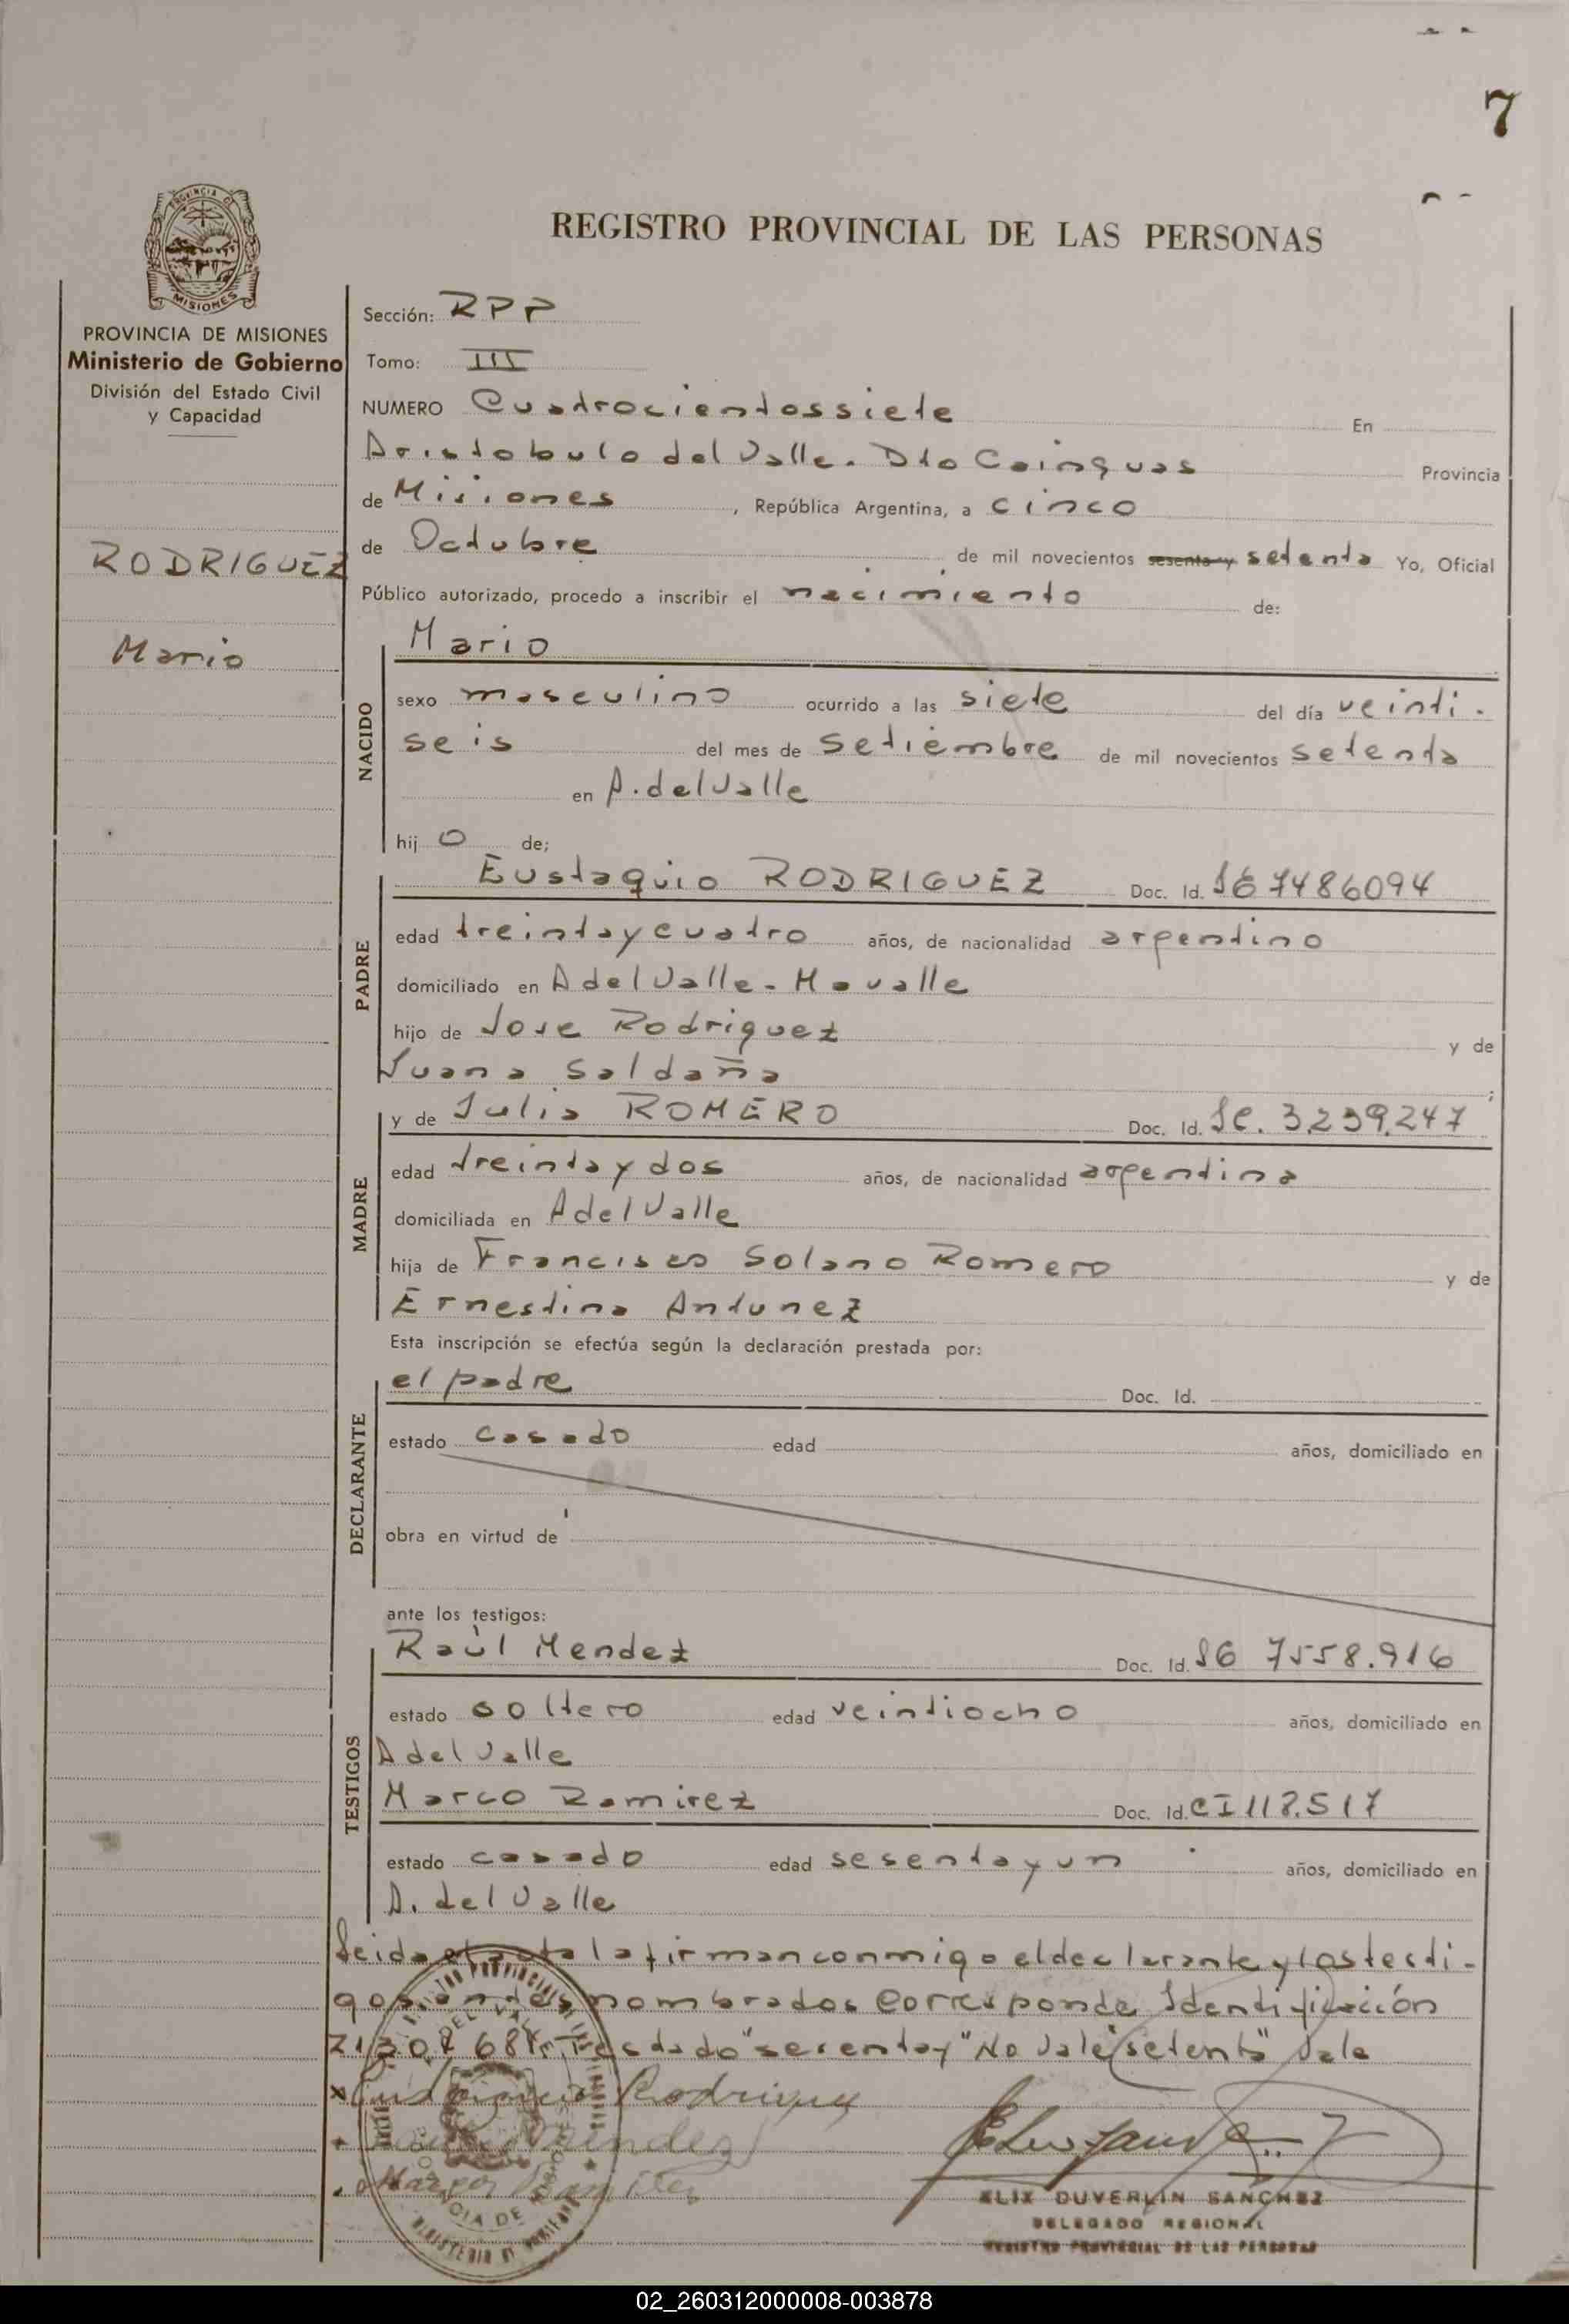 7
REGISTRO PROVINCIAL DE LAS PERSONAS
MISIONES
PROVINCIA DE MISIONES
Ministerio de Gobierno
División del Estado Civil
y Capacidad
RODRIGUEZ
Mario
Sección: RPP
Tomo: III
NUMERO Cuatrocientossiete En
Aristobulo del Valle. Dto Cainguas Provincia
de Misiones, República Argentina, a cinco
de Octubre de mil novecientos sesenta y setenta Yo, Oficial
Público autorizado, procedo a inscribir el nacimiento de:
NACIDO
Mario
sexo masculino ocurrido a las siete del día veinti-
seis del mes de Setiembre de mil novecientos setenta
en A. del Valle
hij o de;
PADRE
Eustaquio RODRIGUEZ Doc. Id. 7486094
edad treinta y cuatro años, de nacionalidad argentino
domiciliado en A del Valle -
hijo de Jose Rodriguez y de
Juana Saldaña;
MADRE
y de Julia ROMERO Doc. Id. 3.239.247
edad treinta y dos años, de nacionalidad argentina
domiciliada en A del Valle
hija de Francisco Solano Romero y de
Ernestina Antunez
Esta inscripción se efectúa según la declaración prestada por:
DECLARANTE
el padre Doc. Id.
estado casado edad años, domiciliado en
obra en virtud de
ante los testigos:
TESTIGOS
Raúl Mendez Doc. Id. 7558.916
estado soltero edad veintiocho años, domiciliado en
A del Valle
Marco Ramirez Doc. Id. CI 118.517
estado casado edad sesenta y un años, domiciliado en
A. del Valle
Leida el acta la firman conmigo el declarante y los testi-
gos nombrados Corresponde Identificación
Testado "sesenta y" No Vale "setenta" Vale
Rodriguez
Mendez
ELIX DUVERLIN SANCHEZ
DELEGADO REGIONAL
REGISTRO PROVINCIAL DE LAS PERSONAS
02_260312000008-003878